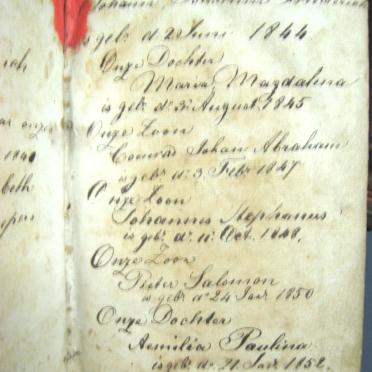 Johann
is geb. d. 2 Juni 1844
Onze Dochter
Maria, Magdalina
is geb. d. 3 August, 1845
Onze Zoon
Conrad Johan Abraham
is geb. d. 3. Febr. 1847
Onze Zoon
Johannes Stephanus
is geb. d. 11. Oct. 1848,
Onze Zoon
Pieter Salomon
is geb. d. 24 Jan. 1850
Onze Dochter
Aemilia Paulina
is geb. d. 21 Jan. 1852.
1840
beth